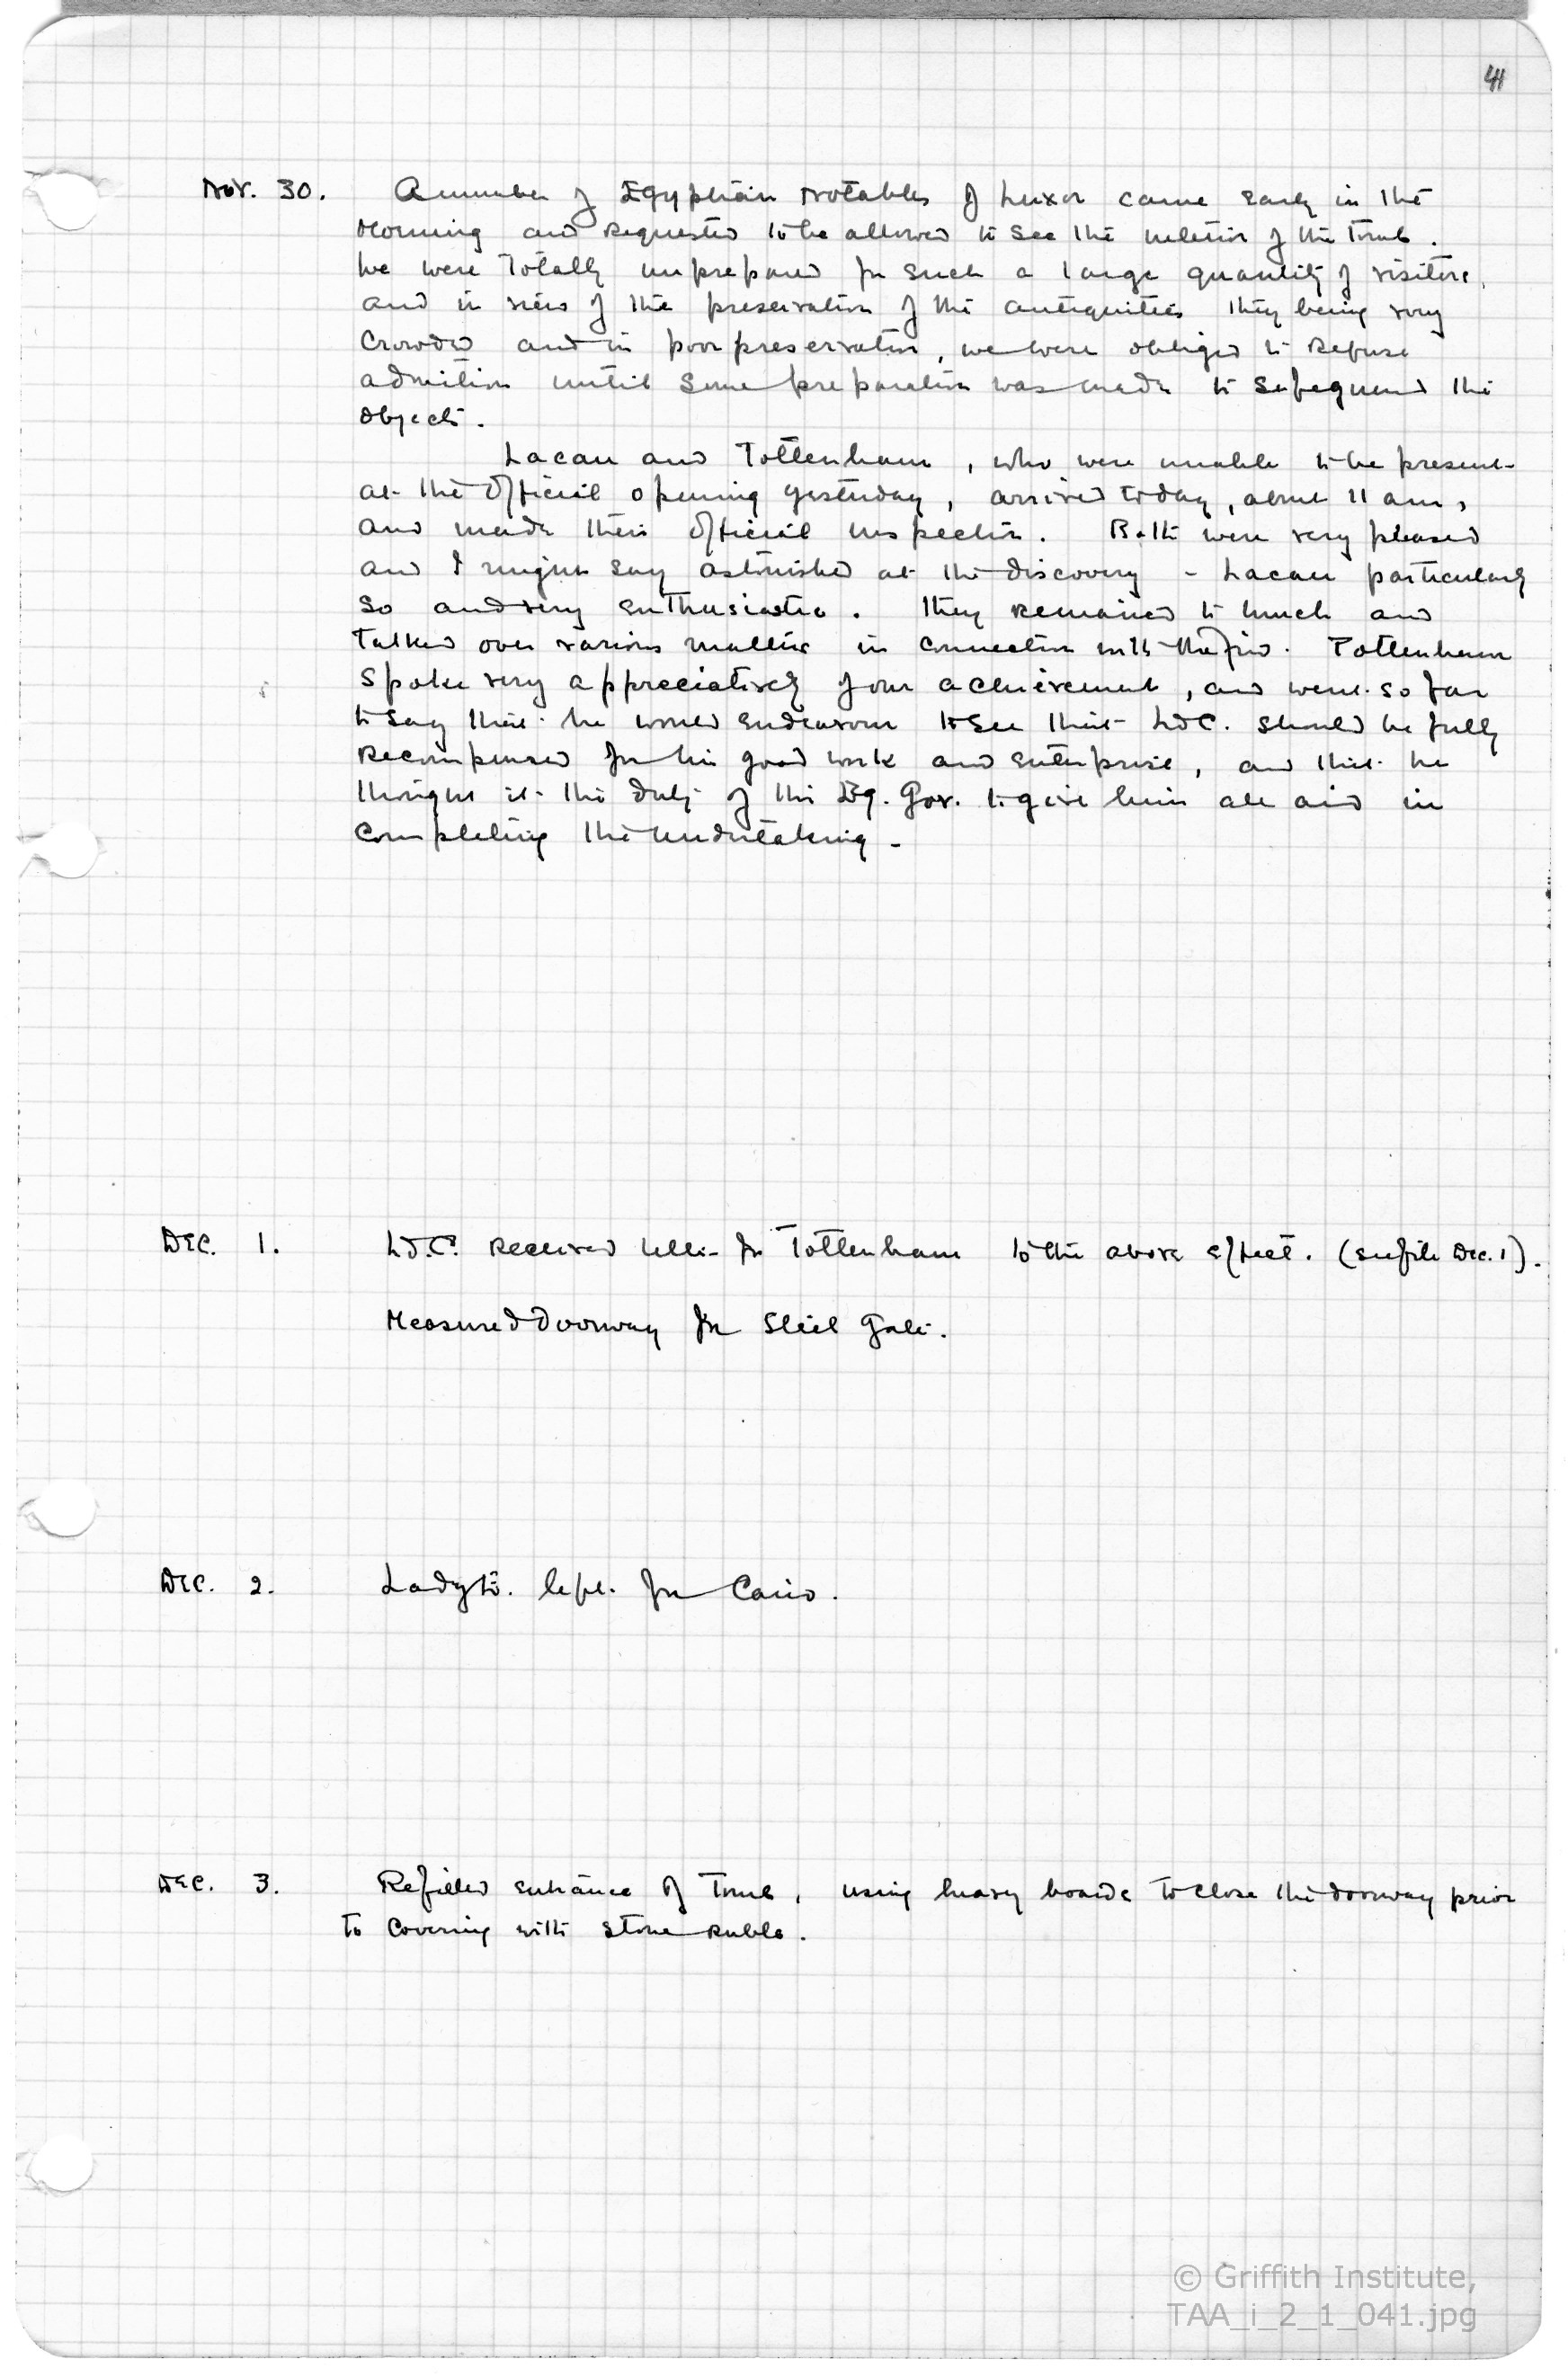 41
Nov. 30. A number of Egyptian Notables of Luxor came early in the
Morning and Requested to be allowed to see the interior of the Tomb.
We were Totally unprepared for such a large quantity of visitors,
and in view of the preservation of the antiquities they being very
Crowded and in poor preservation, we were obliged to Refuse
admition until some preparation was made to Safeguard the
Objects.
Lacau and Tottenham, who were unable to be present
at the Official opening yesterday, arrived today, about 11 am,
and made their Official inspection. Both were very pleased
and I might say astonished at the discovery - Lacau particularly
so and very enthusiastic. They Remained to lunch and
Talked over various matters in connection with the find. Tottenham
Spoke very appreciatively of our achievement, and went so far
to say that he would endeavour to see that Ld C. should be fully
Recompensed for his good work and enterprise, and that he
thought it the duty of the Eg. Gov. to give him all aid in
Completing the undertaking -
Dec. 1. Ld. C. Received letter fr Tottenham to the above effect. (see file Dec. 1).
Measured Doorway for Steel Gate.
Dec. 2. Lady H. left for Cairo.
Dec. 3. Refilled entrance of Tomb, using heavy boards to close the doorway prior
to Covering with stone Ruble.
© Griffith Institute,
TAA_i_2_1_041.jpg